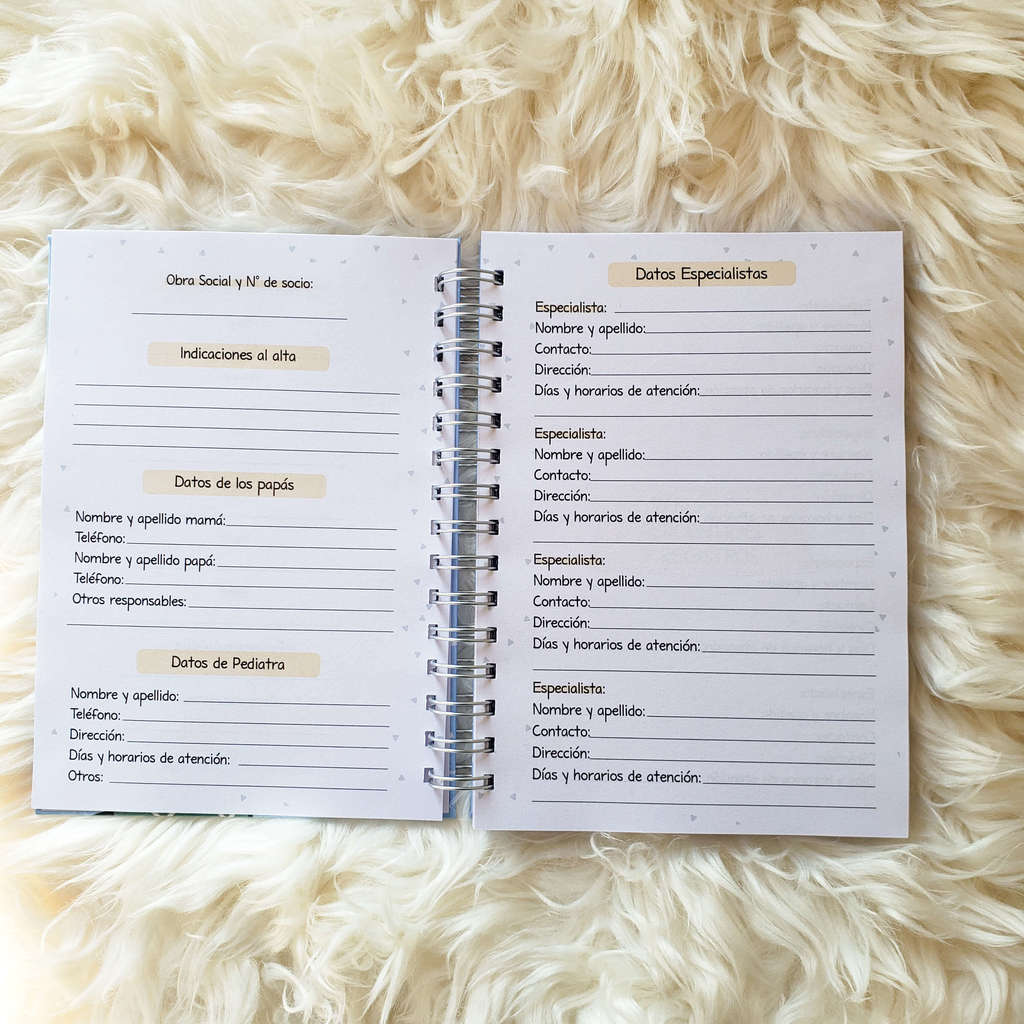 Obra Social y N° de socio:
Indicaciones al alta
Datos de los papás
Nombre y apellido mamá:
Teléfono:
Nombre y apellido papá:
Teléfono:
Otros responsables:
Datos de Pediatra
Nombre y apellido:
Teléfono:
Dirección:
Días y horarios de atención:
Otros:
Datos Especialistas
Especialista:
Nombre y apellido:
Contacto:
Dirección:
Días y horarios de atención:
Especialista:
Nombre y apellido:
Contacto:
Dirección:
Días y horarios de atención:
Especialista:
Nombre y apellido:
Contacto:
Dirección:
Días y horarios de atención:
Especialista:
Nombre y apellido:
Contacto:
Dirección:
Días y horarios de atención: